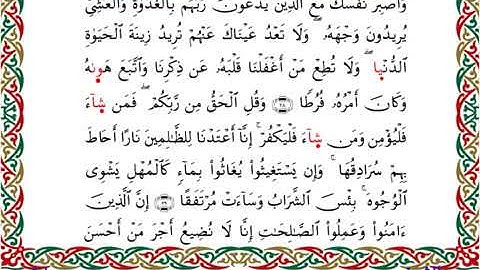 وَٱصْبِرْ نَفْسَكَ مَعَ ٱلَّذِينَ يَدْعُونَ رَبَّهُم بِٱلْغُدْوَةِ وَٱلْعَشِيِّ
يُرِيدُونَ وَجْهَهُۥ ۖ وَلَا تَعْدُ عَيْنَاكَ عَنْهُمْ تُرِيدُ زِينَةَ ٱلْحَيَوٰةِ
ٱلدُّنْيَا ۖ وَلَا تُطِعْ مَنْ أَغْفَلْنَا قَلْبَهُۥ عَن ذِكْرِنَا وَٱتَّبَعَ هَوَىٰهُ
وَكَانَ أَمْرُهُۥ فُرُطًا ۝ وَقُلِ ٱلْحَقُّ مِن رَّبِّكُمْ ۖ فَمَن شَآءَ
فَلْيُؤْمِن وَمَن شَآءَ فَلْيَكْفُرْ ۚ إِنَّآ أَعْتَدْنَا لِلظَّٰلِمِينَ نَارًا أَحَاطَ
بِهِمْ سُرَادِقُهَا ۚ وَإِن يَسْتَغِيثُوا۟ يُغَاثُوا۟ بِمَآءٍ كَٱلْمُهْلِ يَشْوِى
ٱلْوُجُوهَ ۚ بِئْسَ ٱلشَّرَابُ وَسَآءَتْ مُرْتَفَقًا ۝ إِنَّ ٱلَّذِينَ
ءَامَنُوا۟ وَعَمِلُوا۟ ٱلصَّٰلِحَٰتِ إِنَّا لَا نُضِيعُ أَجْرَ مَنْ أَحْسَنَ